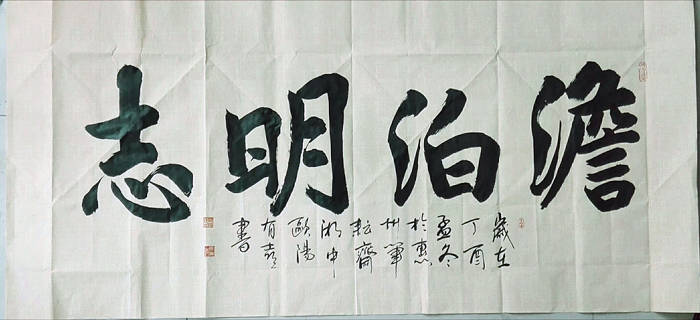 澹泊明志
歲在
丁酉
孟冬
於惠
州筆
耘齋
湘中
歐陽
有
書